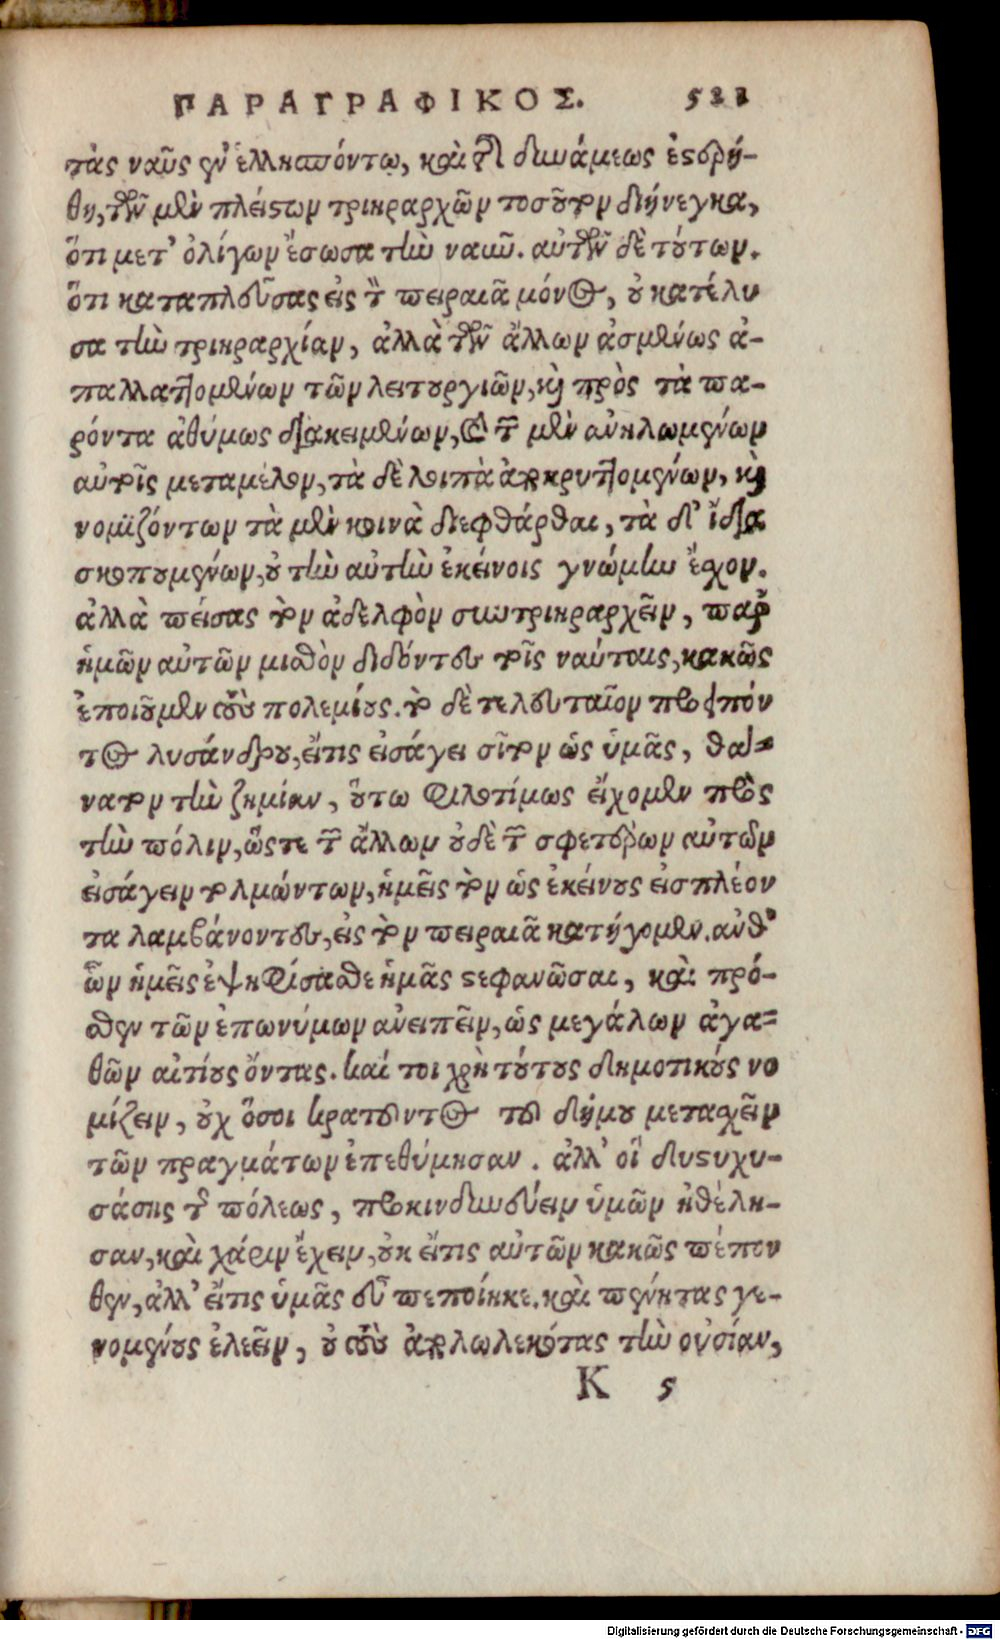 ΠΑΡΑΓΡΑΦΙΚΟΣ. 521
τὰς ναῦς ἐν ἑλλησπόντῳ, καὶ τῆς δυνάμεως ἐστρή-
θη, τῶν μὲν πλείστων τριηραρχῶν τοσοῦτον διήνεγκα,
ὅτι μετ' ὀλίγων ἔσωσα τὴν ναῦν. αὐτῶν δὲ τούτων.
ὅτι καταπλεύσας εἰς τὸν πειραιᾶ μόνος, οὐ κατέλυ
σα τὴν τριηραρχίαν, ἀλλὰ τῶν ἄλλων ἀσμένως ἀ-
παλλαττομένων τῶν λειτουργιῶν, καὶ πρὸς τὰ πα-
ρόντα ἀθύμως διακειμένων, καὶ τῶν μὲν ἀνηλωμένων
αὐτοῖς μεταμέλον, τὰ δὲ λοιπὰ ἀποκρυπτομένων, καὶ
νομϊζόντων τὰ μὲν κοινὰ διεφθάρθαι, τὰ δ' ἴδια
σκοπουμένων, οὐ τὴν αὐτὴν ἐκείνοις γνώμην ἔχον.
ἀλλὰ πείσας τὸν ἀδελφὸν συντριηραρχεῖν, παρ'
ἡμῶν αὐτῶν μισθὸν διδόντες τοῖς ναύταις, κακῶς
ἐποιοῦμεν τοὺς πολεμίους. τὸ δὲ τελευταῖον προειπόν
τος λυσάνδρου, εἴτις εἰσάγει σῖτον ὡς ὑμᾶς, θά-
νατον τὴν ζημίαν, οὕτω φιλοτίμως εἴχομεν πρὸς
τὴν πόλιν, ὥστε τῶν ἄλλων οὐδὲ τῶν σφετέρων αὐτῶν
εἰσάγειν τολμώντων, ἡμεῖς τὸν ὡς ἐκείνους εἰσπλέον
τα λαμβάνοντες, εἰς τὸν πειραιᾶ κατήγομεν. ἀνθ'
ὧν ἡμεῖς ἐψηφίσασθε ἡμᾶς στεφανῶσαι, καὶ πρό-
σθεν τῶν ἐπωνύμων ἀνειπεῖν, ὡς μεγάλων ἀγα-
θῶν αἰτίους ὄντας. καί τοι χρὴ τούτους δημοτικοὺς νο
μίζειν, οὐχ ὅσοι κρατοῦντος τοῦ δήμου μετασχεῖν
τῶν πραγμάτων ἐπεθύμησαν. ἀλλ' οἳ δυστυχυ-
σάσης τῆς πόλεως, προκινδυνεύειν ὑμῶν ἠθέλη-
σαν, καὶ χάριν ἔχειν, οὐκ εἴτις αὐτῶν κακῶς πέπον
θεν, ἀλλ' εἴτις ὑμᾶς εὖ πεποίηκε. καὶ πένητας γε-
νομένους ἐλεεῖν, οὐ τοὺς ἀπολωλεκότας τὴν οὐσίαν,
K 5
Digitalisierung gefördert durch die Deutsche Forschungsgemeinschaft - DFG